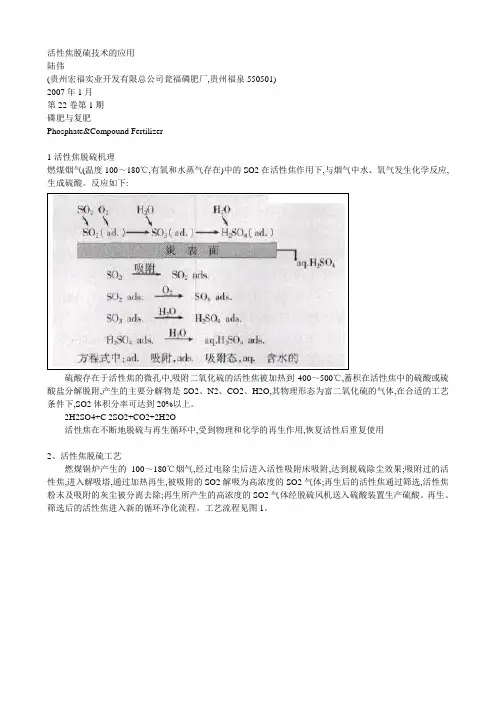 活性焦脱硫技术的应用
陆伟
(贵州宏福实业开发有限总公司瓮福磷肥厂,贵州福泉 550501)
2007 年 1 月
第 22 卷第 1 期
磷肥与复肥
Phosphate&Compound Fertilizer
1 活性焦脱硫机理
燃煤烟气(温度 100～180℃,有氧和水蒸气存在)中的 SO2 在活性焦作用下,与烟气中水、氧气发生化学反应,
生成硫酸。反应如下:
SO₂ O₂ H₂O H₂O
SO₂(ad.) → SO₃(ad.) → H₂SO₄(ad.)
炭 表 面
aq.H₂SO₄
SO₂ 吸附→ SO₂ ads.
SO₂ ads. O₂→ SO₃ ads.
SO₃ ads. H₂O→ H₂SO₄ ads.
H₂SO₄ ads. H₂O→ aq.H₂SO₄ ads.
方程式中:ad. 吸附,ads. 吸附态,aq. 含水的
硫酸存在于活性焦的微孔中,吸附二氧化硫的活性焦被加热到 400～500℃,蓄积在活性焦中的硫酸或硫
酸盐分解脱附,产生的主要分解物是 SO2、N2、CO2、H2O,其物理形态为富二氧化硫的气体,在合适的工艺
条件下,SO2 体积分率可达到 20%以上。
2H2SO4+C 2SO2+CO2+2H2O
活性焦在不断地脱硫与再生循环中,受到物理和化学的再生作用,恢复活性后重复使用
2、活性焦脱硫工艺
燃煤锅炉产生的 100～180℃烟气,经过电除尘后进入活性吸附床吸附,达到脱硫除尘效果;吸附过的活
性焦,进入解吸塔,通过加热再生,被吸附的 SO2 解吸为高浓度的 SO2 气体;再生后的活性焦通过筛选,活性焦
粉末及吸附的灰尘被分离去除;再生所产生的高浓度的 SO2 气体经脱硫风机送入硫酸装置生产硫酸。再生、
筛选后的活性焦进入新的循环净化流程。工艺流程见图 1。